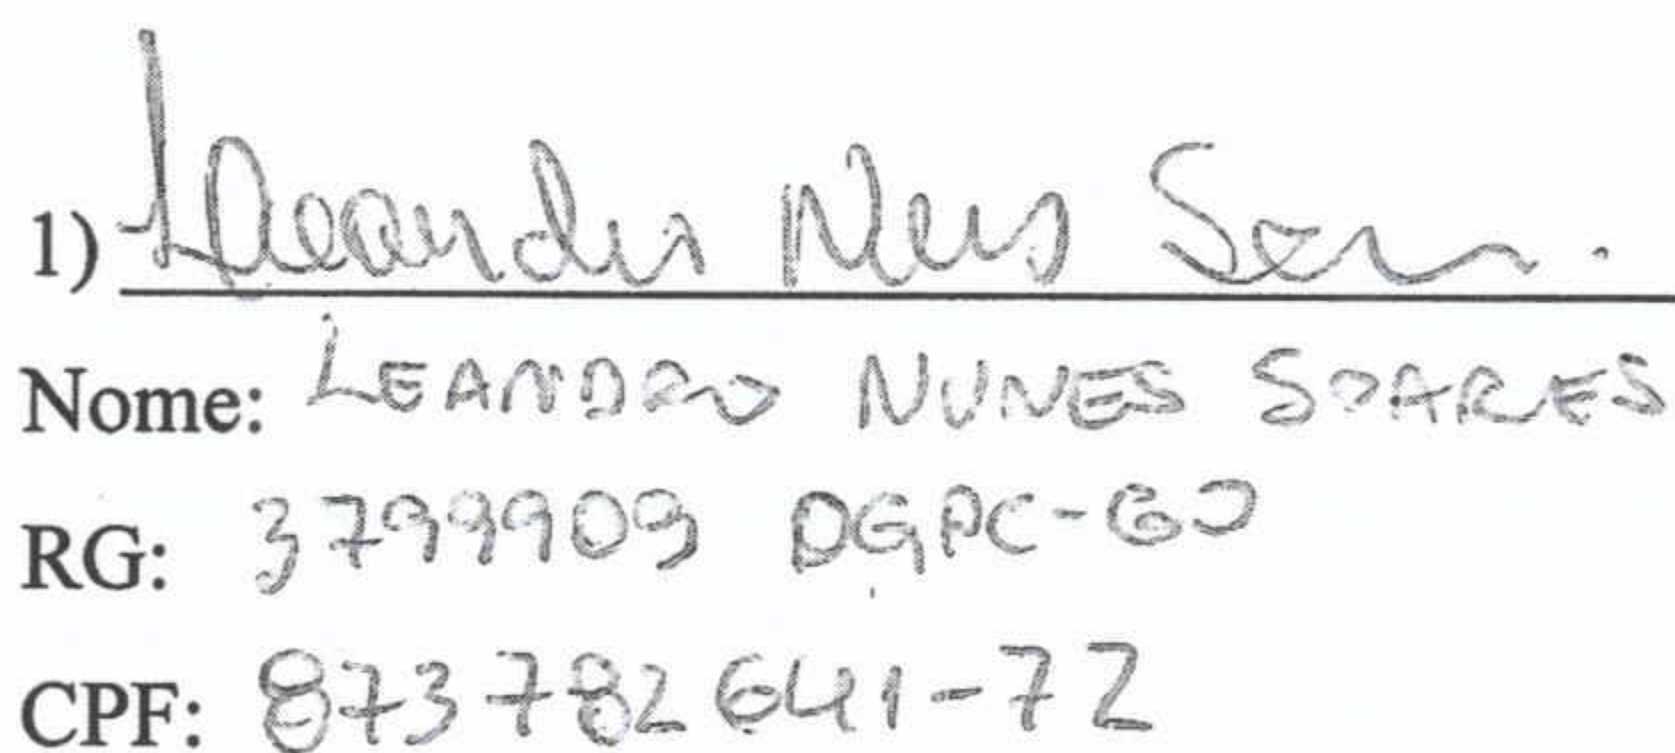 1) Leandro Nunes Soares.
Nome: LEANDRO NUNES SOARES
RG: 3799909 DGPC-GO
CPF: 873782641-72